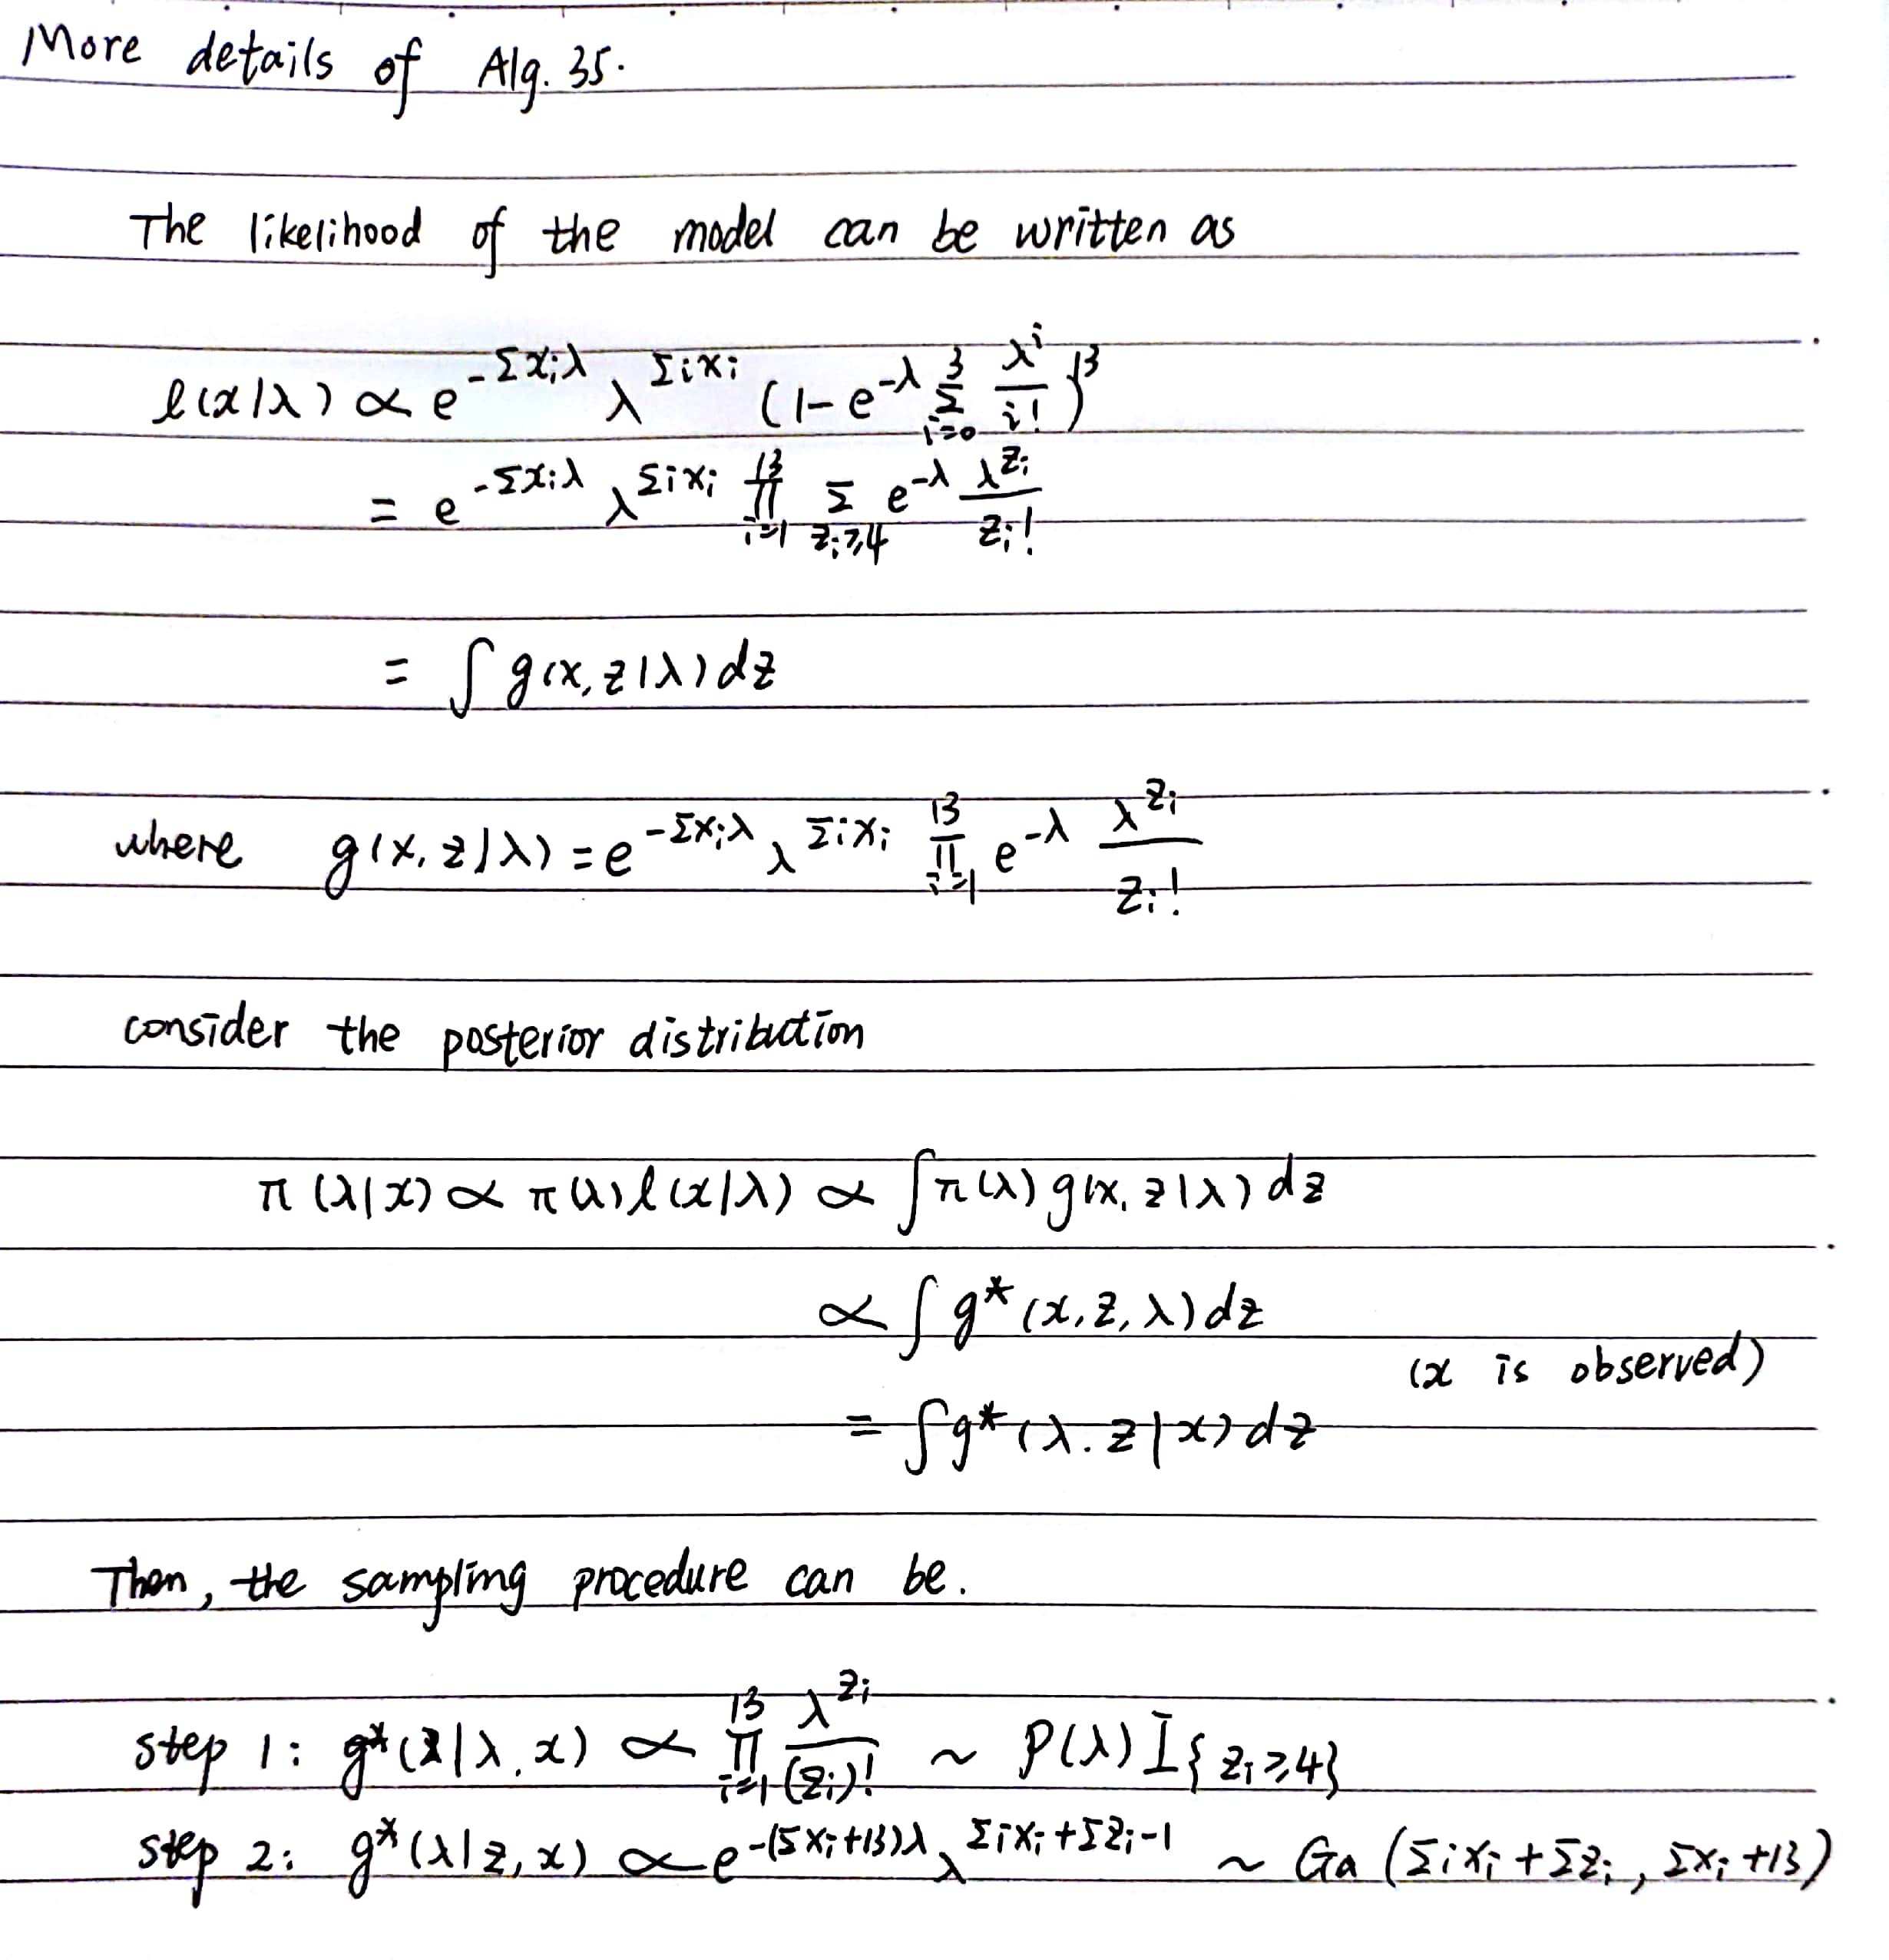 More details of Alg. 35.
The likelihood of the model can be written as
ℓ(x|λ) ∝ e^{-Σx_iλ} λ^{Σix_i} (1-e^{-λ} Σ_{i=0}^{3} λ^i/i!)^{13}
= e^{-Σx_iλ} λ^{Σix_i} ∏_{i=1}^{13} Σ_{z_i≥4} e^{-λ} λ^{z_i}/z_i!
= ∫ g(x, z|λ) dz
where g(x, z|λ) = e^{-Σx_iλ} λ^{Σix_i} ∏_{i=1}^{13} e^{-λ} λ^{z_i}/z_i!
consider the posterior distribution
π(λ|x) ∝ π(λ)ℓ(x|λ) ∝ ∫π(λ) g(x, z|λ) dz
∝ ∫ g*(x, z, λ) dz
(x is observed)
= ∫g*(λ. z|x) dz
Then, the sampling procedure can be.
step 1: g*(z|λ, x) ∝ ∏_{i=1}^{13} λ^{z_i}/(z_i)! ~ P(λ) I{z_i≥4}
step 2: g*(λ|z, x) ∝ e^{-(Σx_i+13)λ} λ^{Σix_i+Σz_i-1} ~ Ga (Σix_i+Σz_i, Σx_i+13)